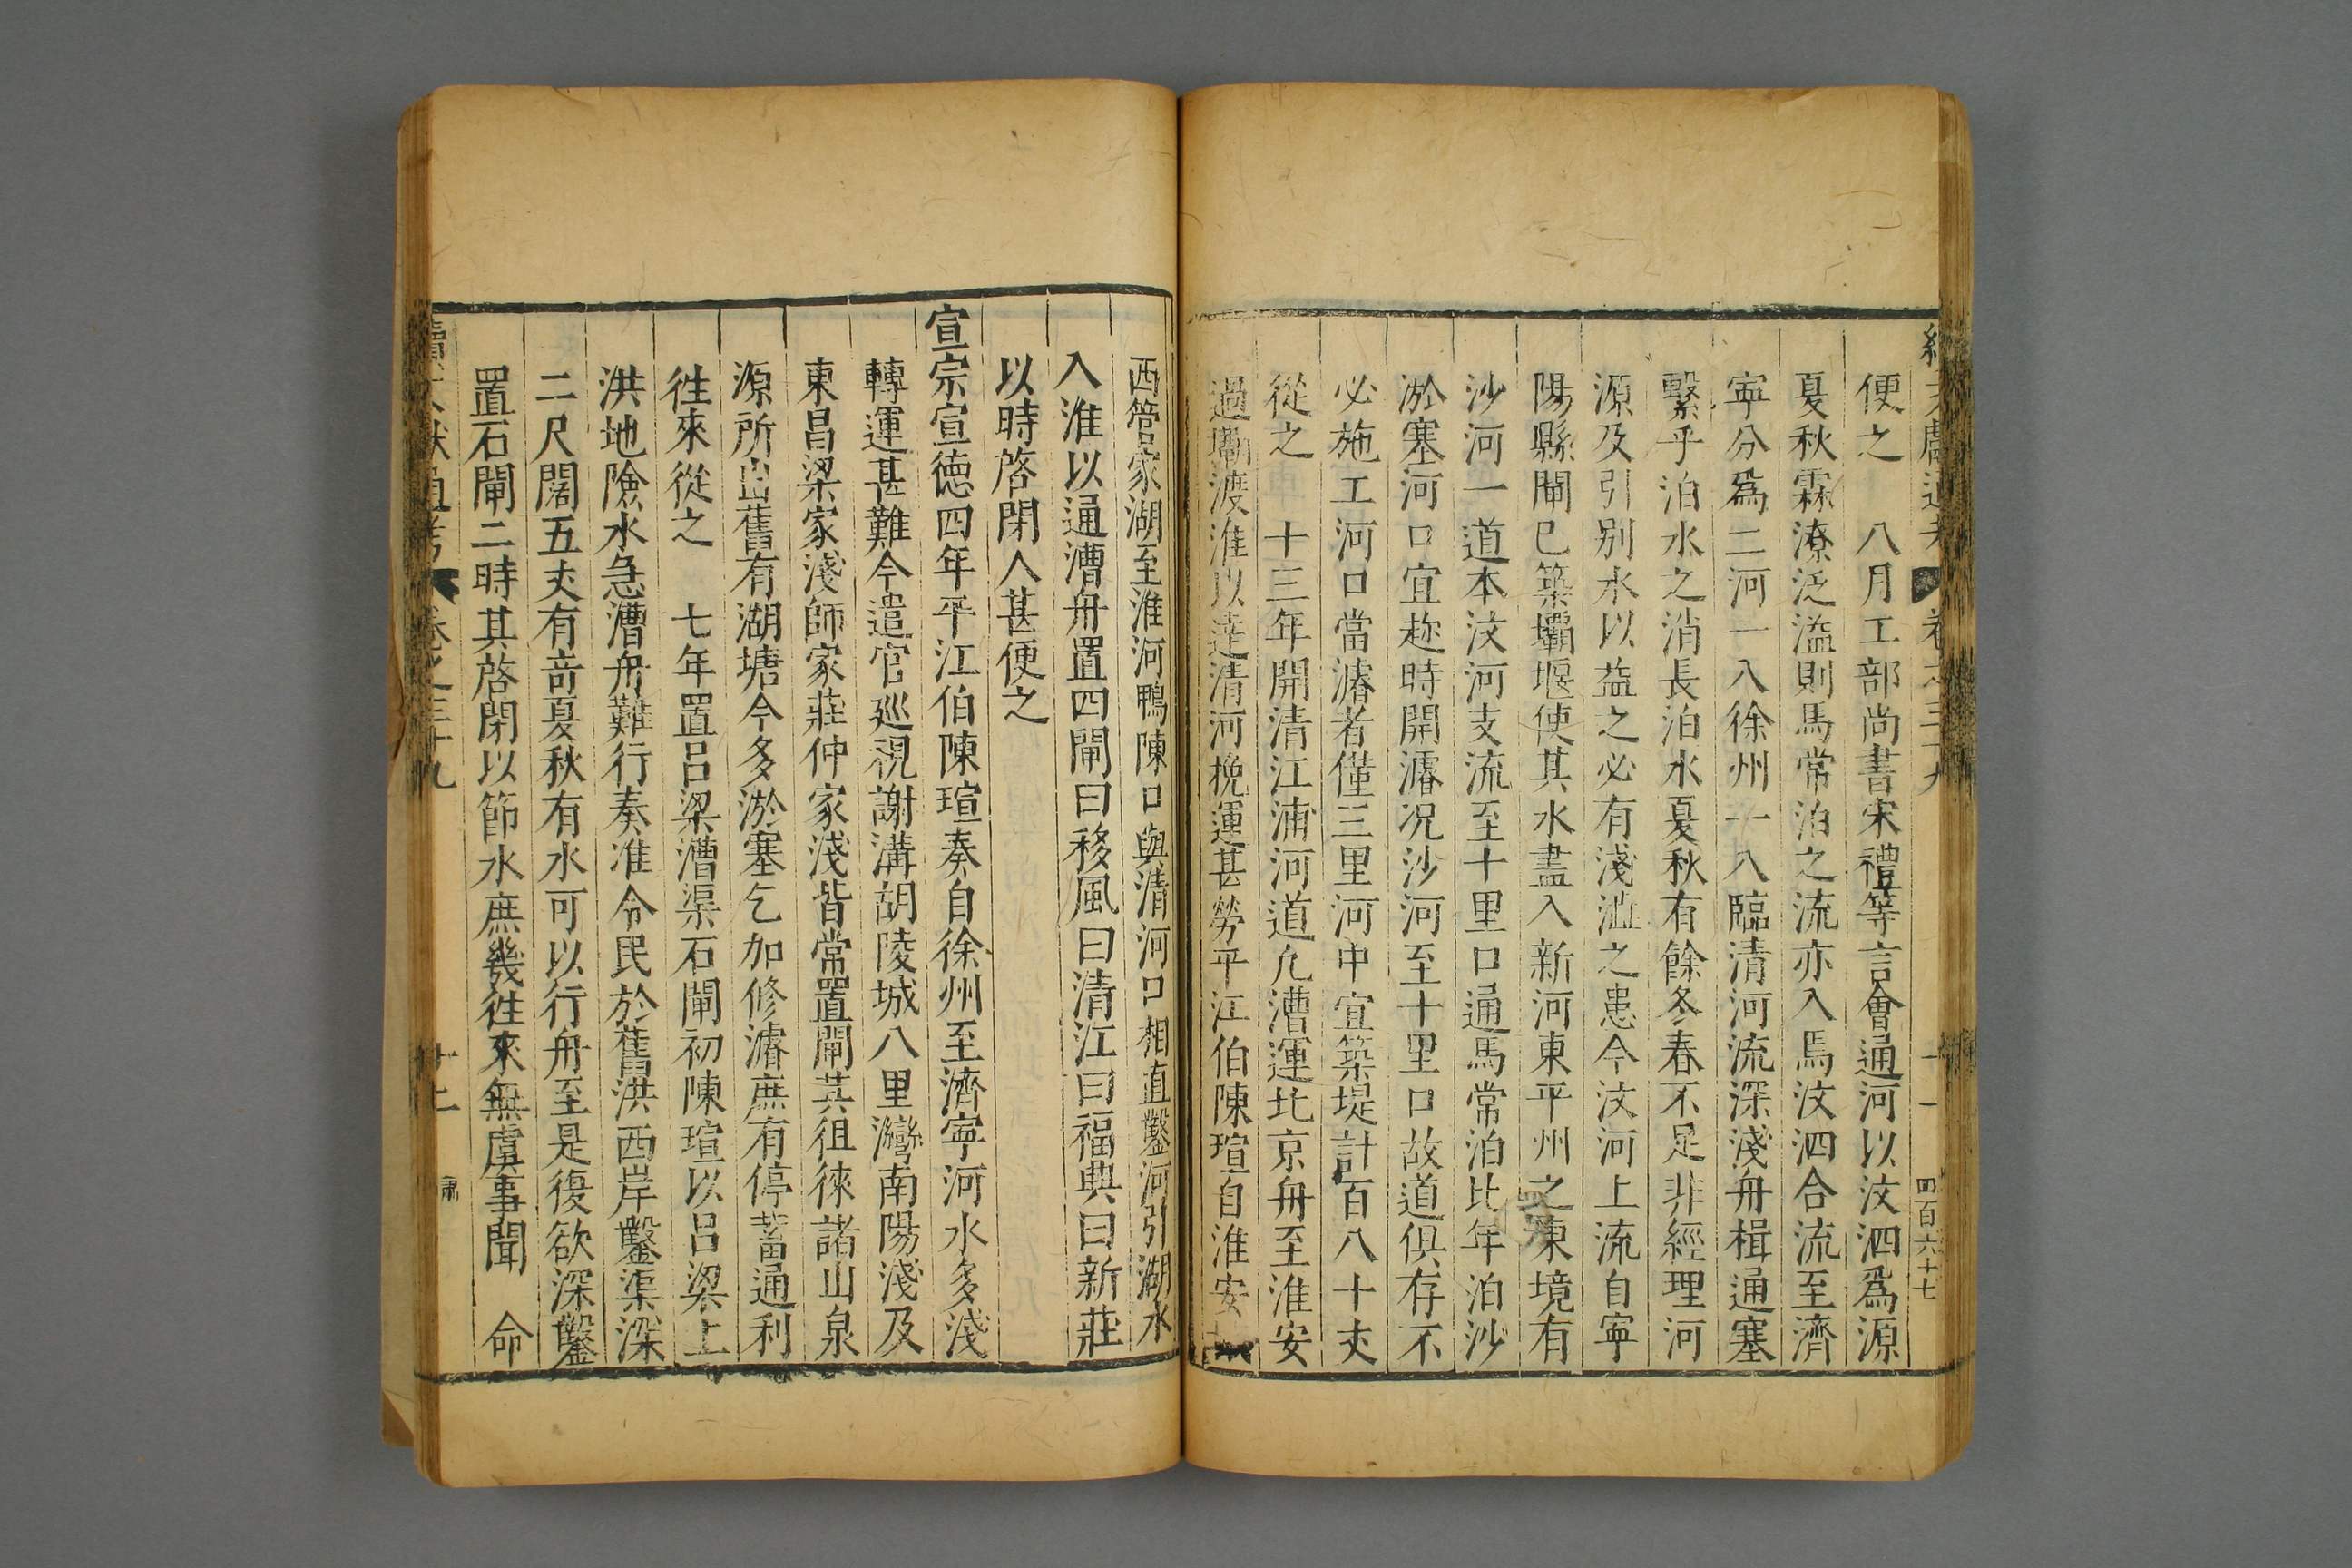 便之　八月工部尚書宋禮等言會通河以汶泗爲源
夏秋霖潦泛溢則馬常泊之流亦入焉汶泗合流至濟
寧分爲二河一入徐州一入臨清河流深淺舟楫通塞
繫乎泊水之消長泊水夏秋有餘冬春不足非經理河
源及引别水以益之必有淺澁之患今汶河上流自寧
陽縣閘已築壩堰使其水盡入新河東平州之東境有
沙河一道本汶河支流至十里口通馬常泊比年泊沙
淤塞河口宜趂時開濬况沙河至十里口故道俱存不
必施工河口當濬者僅三里河中宜築堤計百八十丈
從之　十三年開清江浦河道凢漕運北京舟至淮安
過壩渡淮以達清河挽運甚勞平江伯陳瑄自淮安
西管家湖至淮河鴨陳口與清河口相直鑿河引湖水
入淮以通漕舟置四閘曰移風曰清江曰福興曰新莊
以時啓閉人甚便之
宣宗宣德四年平江伯陳瑄奏自徐州至濟寧河水多淺
轉運甚難今遣官廵視謝溝胡陵城八里灣南陽淺及
東昌梁家淺師家莊仲家淺皆常置閘其徂徠諸山泉
源所出舊有湖塘今多淤塞乞加修濬庶有停蓄通利
徃來從之　七年置吕梁漕渠石閘初陳瑄以吕梁上
洪地險水急漕舟難行奏准令民於舊洪西岸鑿渠深
二尺闊五丈有竒夏秋有水可以行舟至是復欲深鑿
置石閘二時其啓閉以節水庶幾徃來無虞事聞　命